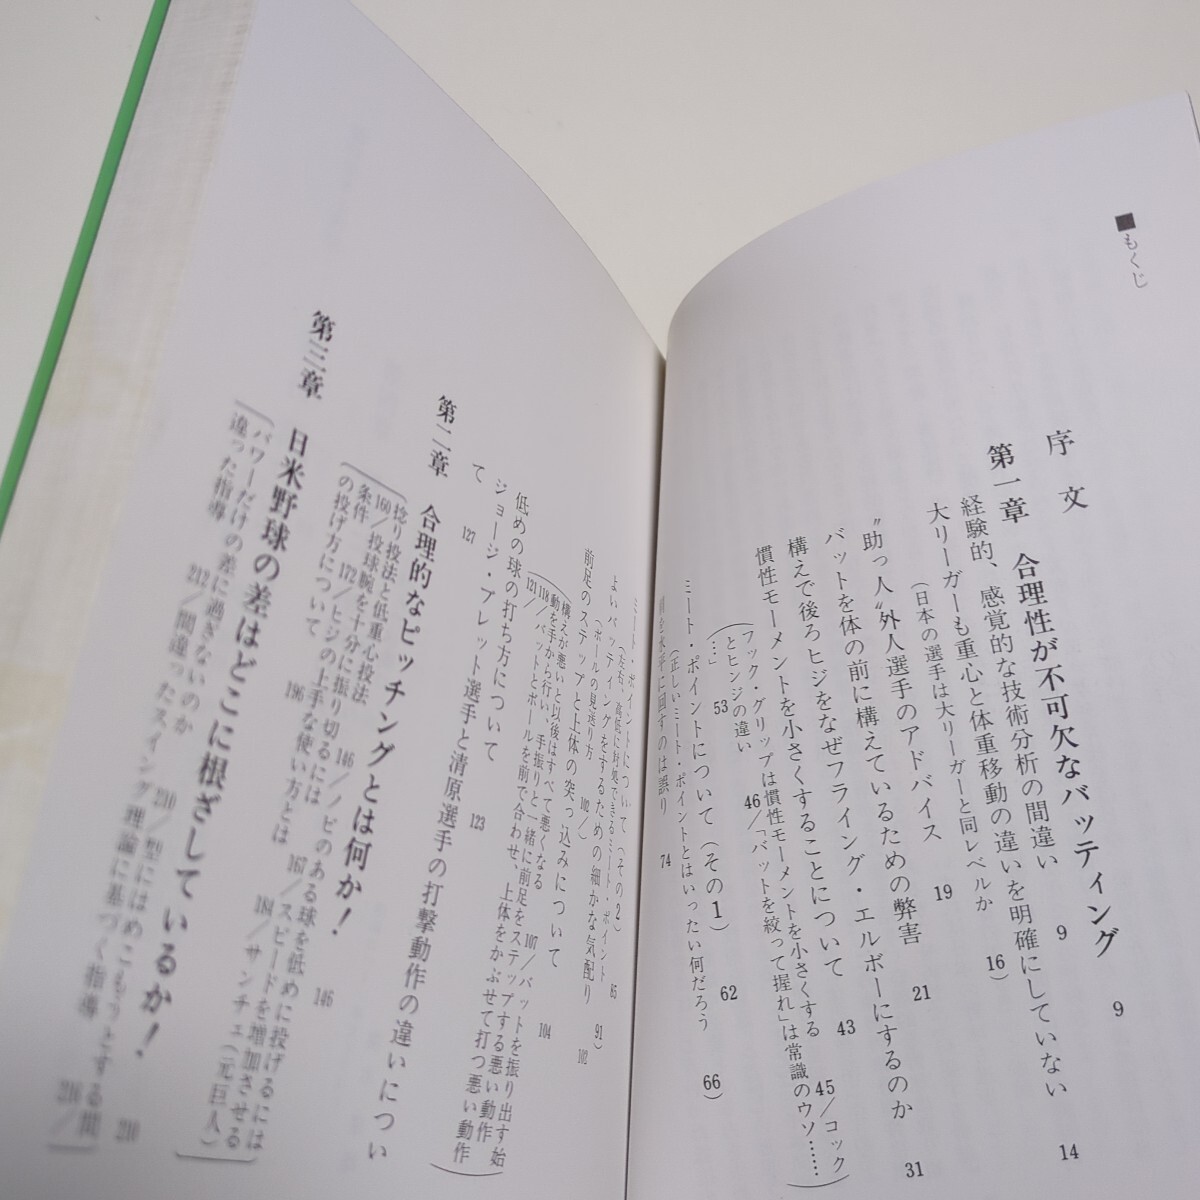 ■もくじ
序文
第一章 合理性が不可欠なバッティング 9
経験的、感覚的な技術分析の間違い 9
大リーガーも重心と体重移動の違いを明確にしていない 14
（日本の選手は大リーガーと同レベルか 16）
“助っ人”外人選手のアドバイス 19
バットを体の前に構えているための弊害 21
構えで後ろヒジをなぜフライング・エルボーにするのか 31
慣性モーメントを小さくすることについて 43
（フック・グリップは慣性モーメントを小さくする 45／コック
とヒンジの違い 46／「バットを絞って握れ」は常識のウソ……
…」 53
ミート・ポイントについて（その1） 62
（正しいミート・ポイントとはいったい何だろう 66）
水平に回すのは誤り 74
ミート・ポイントについて（その2） 85
（左右、高低に対処できるミート・ポイント 91）
よいバッティングをするための細かな気配り 102
（ボールの見送り方 102／）
前足のステップと上体の突っ込みについて 104
（構えが悪いと以後はすべて悪くなる 107／バットを振り出す始
動を手から行い、手振りと一緒に前足をステップする悪い動作
118／バットとボールを前で合わせ、上体をかぶせて打つ悪い動作
121／）
低めの球の打ち方について 123
ジョージ・ブレット選手と清原選手の打撃動作の違いについ
て 127
第二章 合理的なピッチングとは何か！ 146
（捻り投法と低重心投法 146／ノビのある球を低めに投げるには
160／投球腕を十分に振り切るには 167／スピードを増加させる
条件 172／ヒジの上手な使い方とは 184／サンチェ（元巨人）
の投げ方について 196
第三章 日米野球の差はどこに根ざしているか！ 210
（パワーだけの差に過ぎないのか 210／型にはめこもうとする間
違った指導 212／間違ったスイング理論に基づく指導 216／